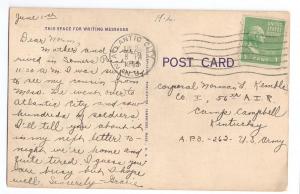 June
THIS SPACE FOR WRITING MESSAGES
Dear Norm,
Mother and I ar-
rived in Somers Point
11:30 A.M. I was surprised
to see my cousin from
Mass. We went over to
Atlantic City and saw
hundreds of soldiers
I'll tell you about it
in my next letter to-
night. We're home and
quite tired. I guess you
are busy but I hope
well. Sincerely
N.J.
ATLANTIC CITY
POST CARD
1
Corporal Norman L. Kemble
Co I, 56th A.I.R.
Camp Campbell
Kentucky
A.P.O.-262- U.S. Army